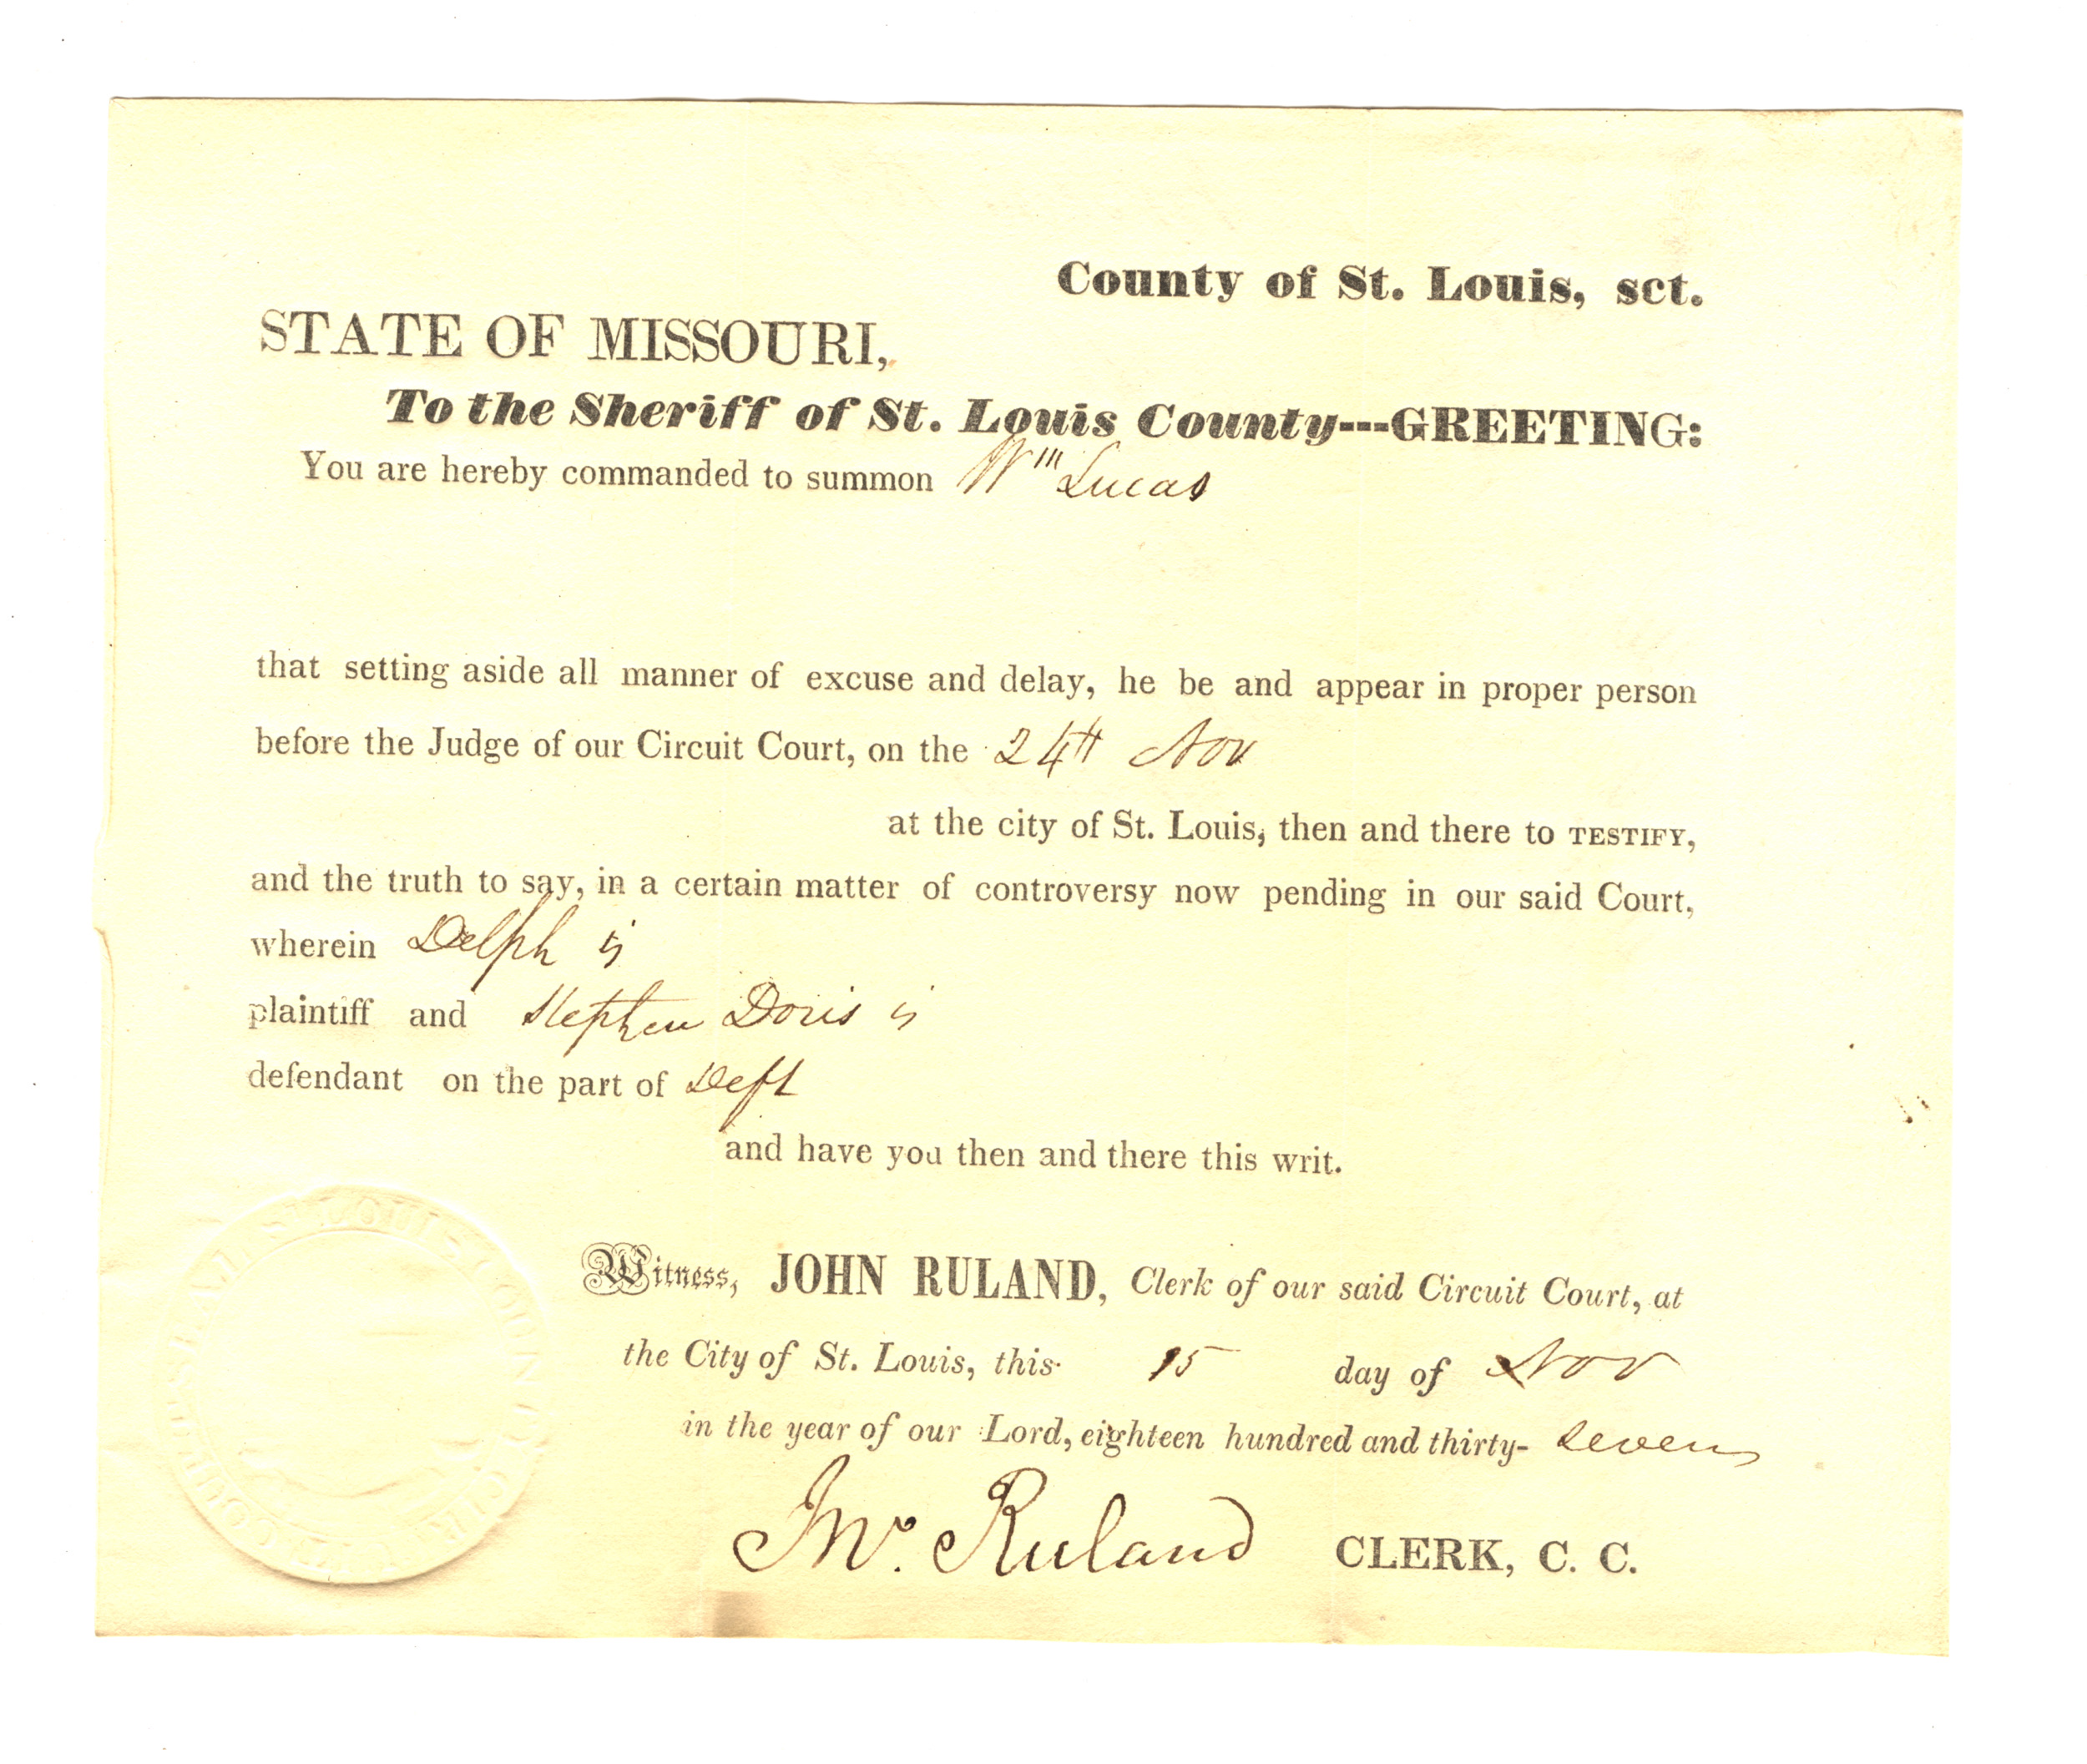 County of St. Louis, sct.
STATE OF MISSOURI,
To the Sheriff of St. Louis County---GREETING:
You are hereby commanded to summon Wm Lucas
that setting aside all manner of excuse and delay, he be and appear in proper person
before the Judge of our Circuit Court, on the 24th Nov
at the city of St. Louis, then and there to TESTIFY,
and the truth to say, in a certain matter of controversy now pending in our said Court,
wherein Delph is
plaintiff and Stephen Doris is
defendant on the part of Deft
and have you then and there this writ.
Witness, JOHN RULAND, Clerk of our said Circuit Court, at
the City of St. Louis, this 15 day of Nov
in the year of our Lord, eighteen hundred and thirty- seven
Jno. Ruland CLERK, C. C.